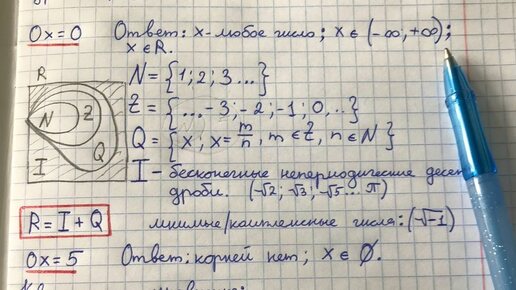 0x=0 Ответ: x-любое число; x ∈ (-∞;+∞);
x ∈ R.
R
N = {1; 2; 3...}
N Z Q I
Z = {...-3;-2;-1; 0,..}
Q = {x; x = m/n, m ∈ Z, n ∈ N}
I - бесконечные непериодические
дроби. (-√2; -√3; -√5... π)
R = I + Q
мнимые/комплексные числа: (√-1)
0x=5 Ответ: корней нет; x ∈ ∅.